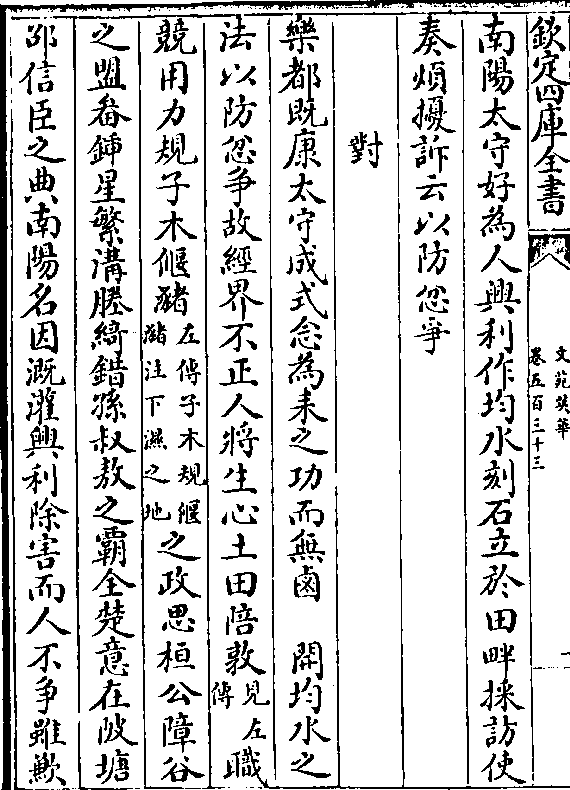 欽定四庫全書
文苑英華
卷五百三十三
南陽太守好為人興利作均水刻石立於田畔採訪使
奏煩擾訴云以防忿爭
對
樂都既康太守成式念為耒之功而無鹵 開均水之
法以防忿爭故經界不正人將生心土田陪敦見左傳職
競用力規子木偃豬左傳子木規偃豬注下濕之地之政思桓公障谷
之盟畚鍤星繁溝塍綺錯孫叔敖之霸全楚意在陂塘
邵信臣之典南陽名因溉灌興利除害而人不爭雖歉